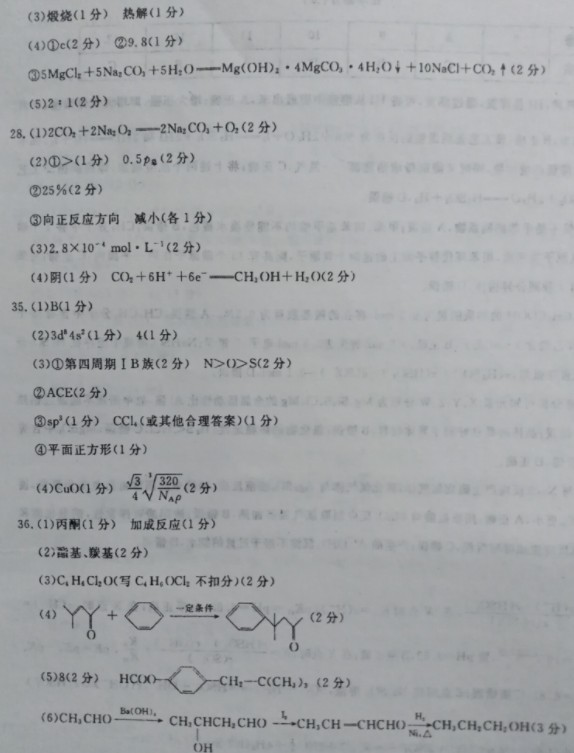 (3)煅烧(1分) 热解(1分)
(4)①c(2分) ②9.8(1分)
③5MgCl₂+5Na₂CO₃+5H₂O══Mg(OH)₂·4MgCO₃·4H₂O↓+10NaCl+CO₂↑(2分)
(5)2:1(2分)
28.(1)2CO₂+2Na₂O₂══2Na₂CO₃+O₂(2分)
(2)①>(1分) 0.5p总(2分)
②25%(2分)
③向正反应方向 减小(各1分)
(3)2.8×10⁻⁴ mol·L⁻¹(2分)
(4)阴(1分) CO₂+6H⁺+6e⁻══CH₃OH+H₂O(2分)
35.(1)B(1分)
(2)3d⁸4s²(1分) 4(1分)
(3)①第四周期ⅠB族(2分) N>O>S(2分)
②ACE(2分)
③sp³(1分) CCl₄(或其他合理答案)(1分)
④平面正方形(1分)
(4)CuO(1分) √3/4 ³√320/N_Aρ(2分)
36.(1)丙酮(1分) 加成反应(1分)
(2)羰基(2分)
(3)C₄H₆Cl₂O(写C₄H₆OCl₂不扣分)(2分)
(4) O + 一定条件 O (2分)
(5)8(2分) HCOO— —CH₂—C(CH₃)₃ (2分)
(6)CH₃CHO Ba(OH)₂ CH₃CHCH₂CHO I₂ CH₃CH═CHCHO H₂ Ni,△ CH₃CH₂CH₂CH₂OH(3分)
OH